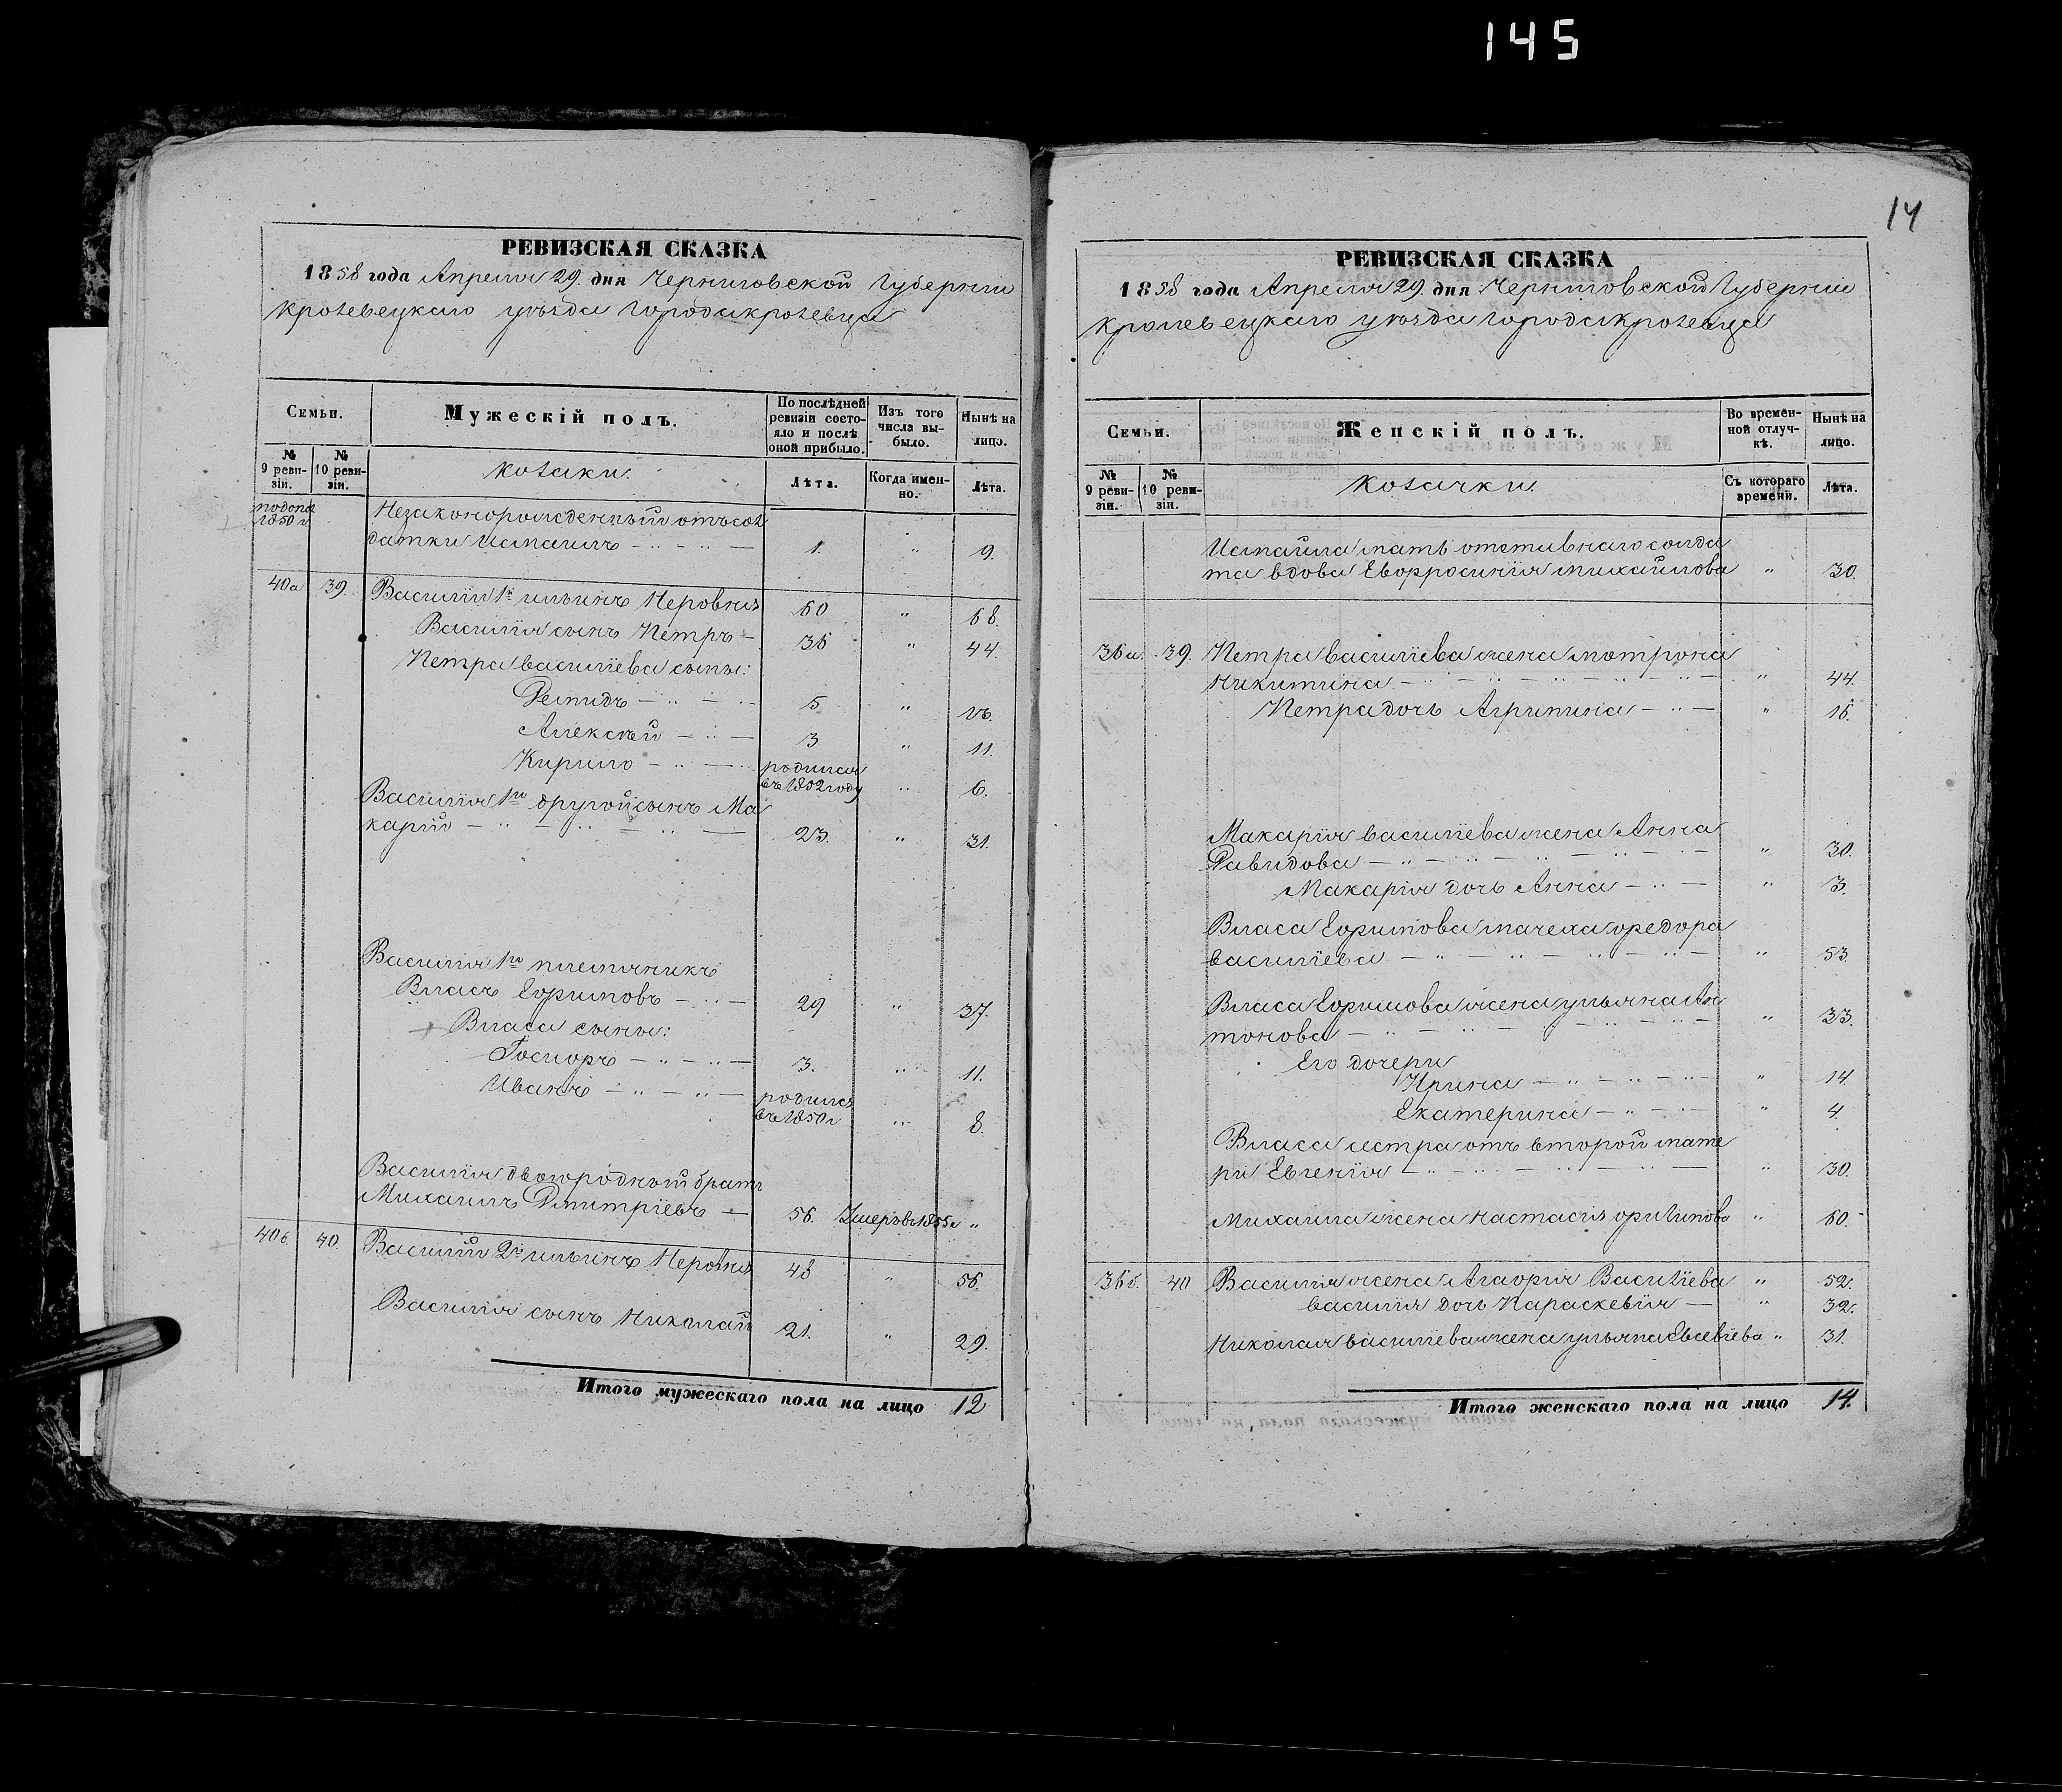 145
РЕВИЗСКАЯ СКАЗКА
1858 года Апреля 29. дня Черниговской Губернии
Кролевецкаго уѣзда города Кролевца
Семьи.
Мужескій полъ.
По послѣдней ревизіи состояло и послѣ оной прибыло.
Изъ того числа выбыло.
Нынѣ на лицо.
№ 9 ревизіи.
№ 10 ревизіи.
Козаки.
Лѣта.
Когда именно.
Лѣта.
1850 г
Незаконорожденный отъ сол
датки Исмаилъ 1. " 9.
40а 39. Василій 1й Ильинъ Неровня 60 " 68.
Василія сынъ Петръ 36 " 44.
Петра Васильева сыны:
Демидъ 5 "
Алексѣй 3 " 11.
Кирило родился
въ 1852 году " 6.
Василія 1го другой сынъ Ма
карій 23. " 31.
Василія 1го племяникъ
Власъ Ефимовъ 29 " 37.
Власа сыны:
3. " 11.
Иванъ родился
въ 1850 г " 8.
Василія двоюродный братъ
Михаилъ Дмитріевъ 56. Умеръ въ 1855 г "
40б. 40. Василій 2й Ильинъ Неровня 48 " 56.
Василія сынъ Николай 21. " 29.
Итого мужескаго пола на лицо 12
14
РЕВИЗСКАЯ СКАЗКА
1858 года Апреля 29. дня Черниговской Губерніи
Кролевецкаго уѣзда города Кролевца
Семьи.
Женскій полъ.
Во временной отлучкѣ.
Нынѣ на лицо.
№ 9 ревизіи.
№ 10 ревизіи.
Козачки.
Съ котораго времени.
Лѣта.
Исмаила мать отставнаго солда
та вдова Евфросинія Михайлова " 30.
36а. 39. Петра Васильева жена Мотрона
Никитина " 44.
Петра дочь Агрипина " 16.
Макарія Васильева жена Анна
Давидова " 30.
Макарія дочь Анна " 3.
Власа Ефимова мачеха Федора
Васильева " 53.
Власа Ефимова жена Ульяна Ан
тонова " 33.
Его дочери
Ирина " 14.
Екатерина " 4.
Власа сестра отъ второй мате
ри Евгенія " 30.
Михаила жена Настасія Филипова " 60.
36б. 40 Василія жена Агафія Васильева " 52.
Василія дочь Параскевія " 32.
Николая Васильева жена Ульяна Евсевіева " 31.
Итого женскаго пола на лицо 14.